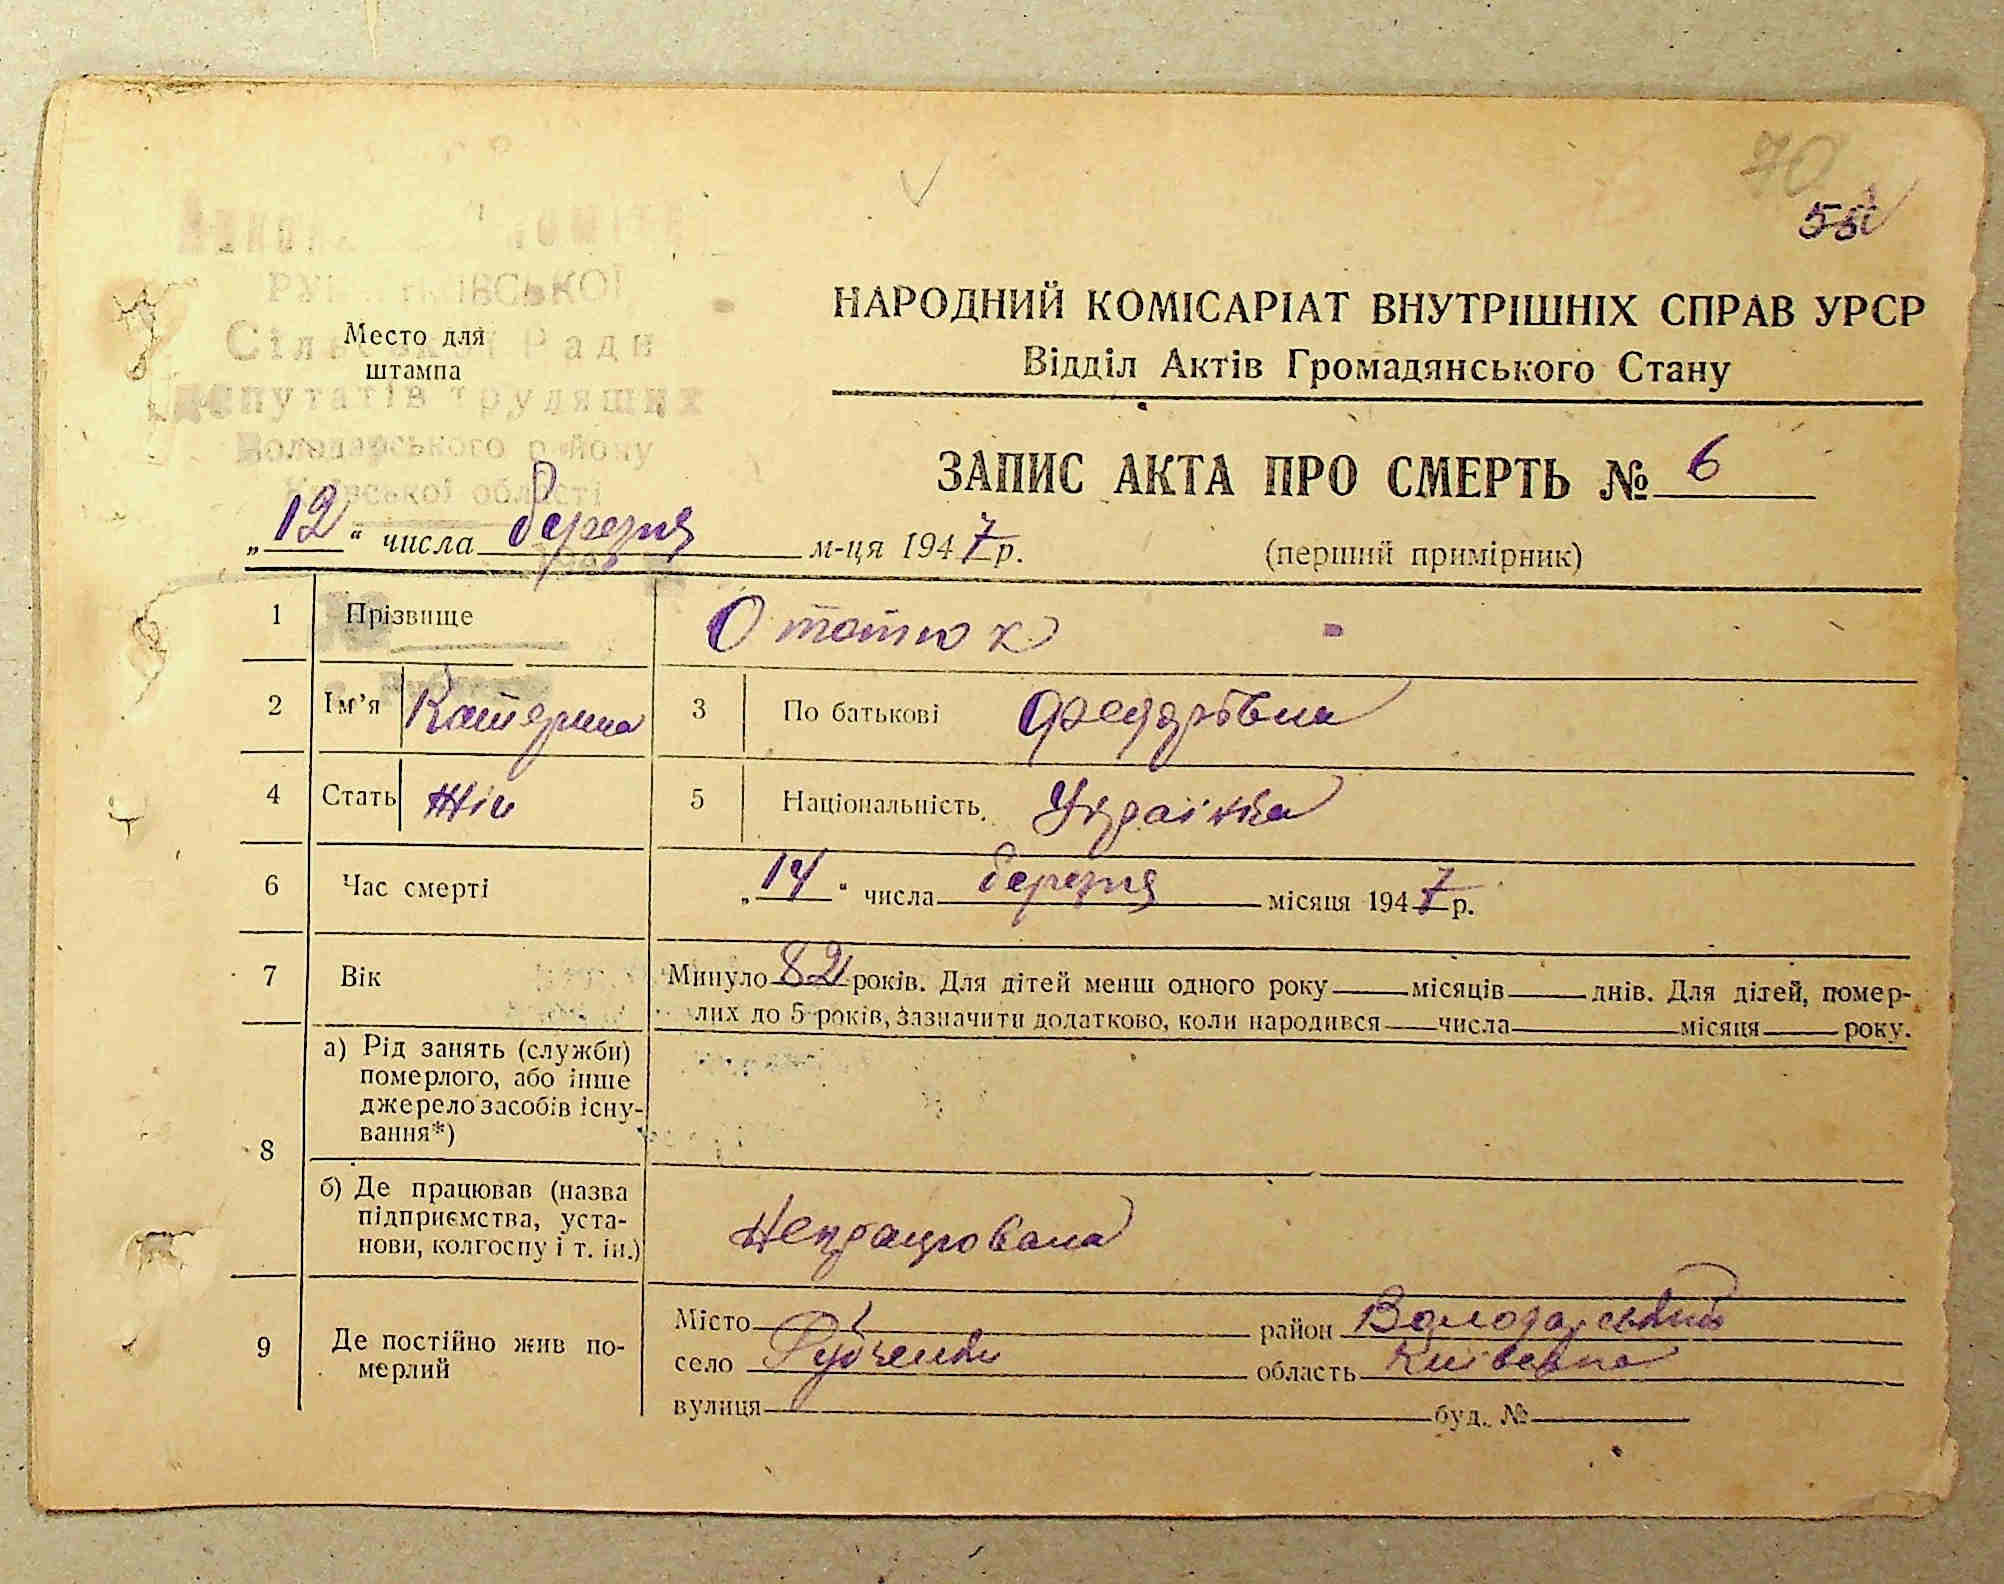 70
РУ
ІВСЬКОЇ
Сільської Ради
депутатів трудящих
Володарського району
Київської області
Место для
штампа
НАРОДНИЙ КОМІСАРІАТ ВНУТРІШНІХ СПРАВ УРСР
Відділ Актів Громадянського Стану
ЗАПИС АКТА ПРО СМЕРТЬ № 6
„12“ числа березня м-ця 1947 р.
(перший примірник)
1 Прізвище Отатюк
2 Ім’я Катерина 3 По батькові Федорівна
4 Стать жін 5 Національність Українка
6 Час смерті „14“ числа березня місяця 1947 р.
7 Вік Минуло 82 років. Для дітей менш одного року місяців днів. Для дітей, помер-
лих до 5 років, зазначити додатково, коли народився числа місяця року.
8 а) Рід занять (служби)
померлого, або інше
джерело засобів існу-
вання*)
б) Де працював (назва
підприємства, уста-
нови, колгоспу і т. ін.) Непрацювала
9 Де постійно жив по-
мерлий
Місто район Володарський
село Рубченки область Київська
вулиця буд. №